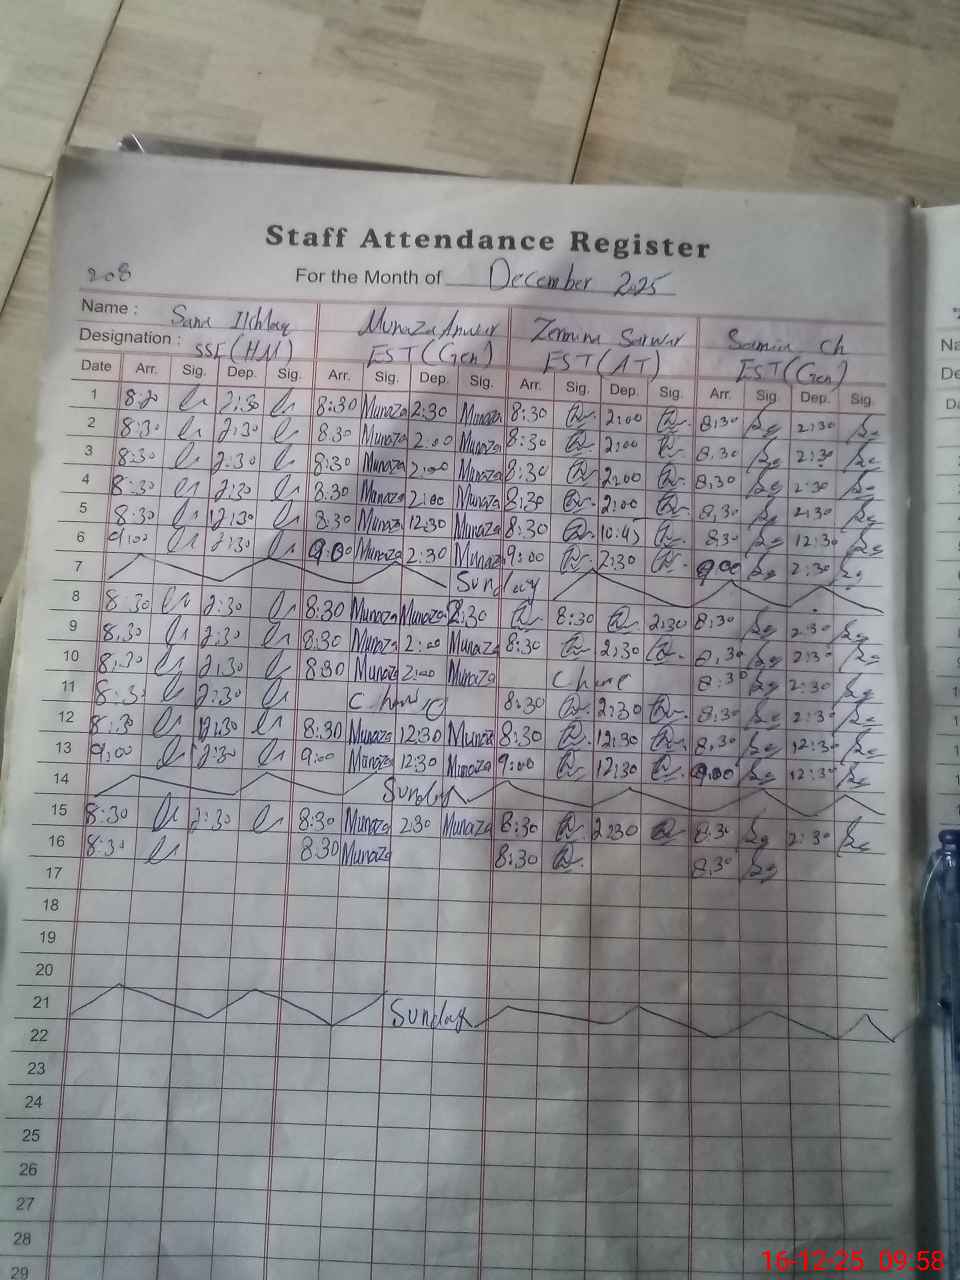 Staff Attendance Register
208 For the Month of December 2025
Name : Sana Munaza Anwar Sarwar Samia Ch
Designation : SSE (HM) EST (Gen) EST (AT) EST (Gen)
Date Arr. Sig. Dep. Sig. Arr. Sig. Dep. Sig. Arr. Sig. Dep. Sig. Arr. Sig. Dep. Sig.
1 8:30 2:30 8:30 Munaza 2:30 Munaza 8:30 2:00 8:30 2:30
2 8:30 2:30 8:30 Munaza 2:00 Munaza 8:30 2:00 8:30 2:30
3 8:30 2:30 8:30 Munaza 2:00 Munaza 8:30 2:00 8:30 2:30
4 8:30 2:30 8:30 Munaza 2:00 Munaza 8:30 2:00 8:30 2:30
5 8:30 12:30 8:30 Munaza 12:30 Munaza 8:30 10:45 8:30 12:30
6 9:00 2:30 9:00 Munaza 2:30 Munaza 9:00 2:30 9:00 2:30
7 Sunday
8 8:30 2:30 8:30 Munaza Munaza 2:30 8:30 2:30 8:30 2:30
9 8:30 2:30 8:30 Munaza 2:00 Munaza 8:30 2:30 8:30 2:30
10 8:30 2:30 8:30 Munaza 2:00 Munaza 8:30 2:30
11 8:30 2:30 8:30 2:30 8:30 2:30
12 8:30 12:30 8:30 Munaza 12:30 Munaza 8:30 12:30 8:30 12:30
13 9:00 2:30 9:00 Munaza 12:30 Munaza 9:00 12:30 9:00 12:30
14 Sunday
15 8:30 2:30 8:30 Munaza 2:30 Munaza 8:30 2:30 8:30 2:30
16 8:30 8:30 Munaza 8:30 8:30
17
18
19
20
21 Sunday
22
23
24
25
26
27
28
29
16-12-25 09:58